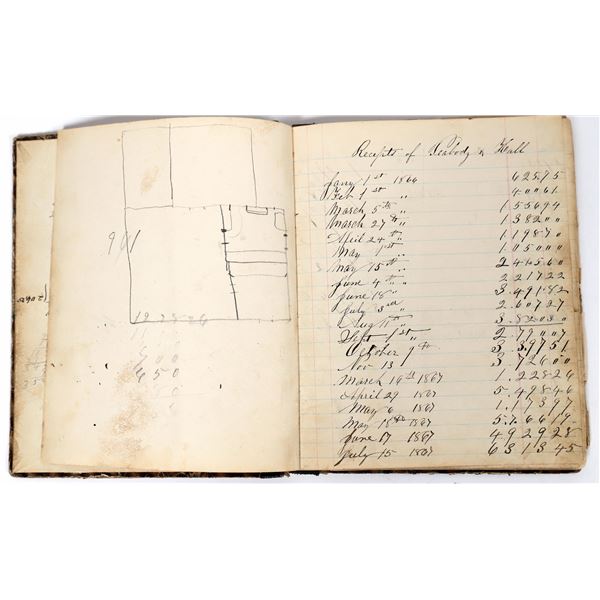 961
19 78 26
600
650
Receipts of Peabody & Hall
Jany 1st 1866 625 75
Feb 1st " 400 61
March 5th " 1.556 94
March 27th " 1.382 00
April 24th " 1.198 70
May 1st " 1.050 00
May 15th " 2.415 60
June 4th " 2.217 22
June 18 " 3.491 82
July 3rd " 2.607 27
Aug 11th " 3.820 30
Sept 1st " 2.790 07
October 9th 3.397 51
Nov 13 3.726 00
March 19th 1867 1.228 26
April 29 1867 5.498 46
May 6 1867
May 18th 1867
June 17 1867 4929 28
July 15 1867 6313 45